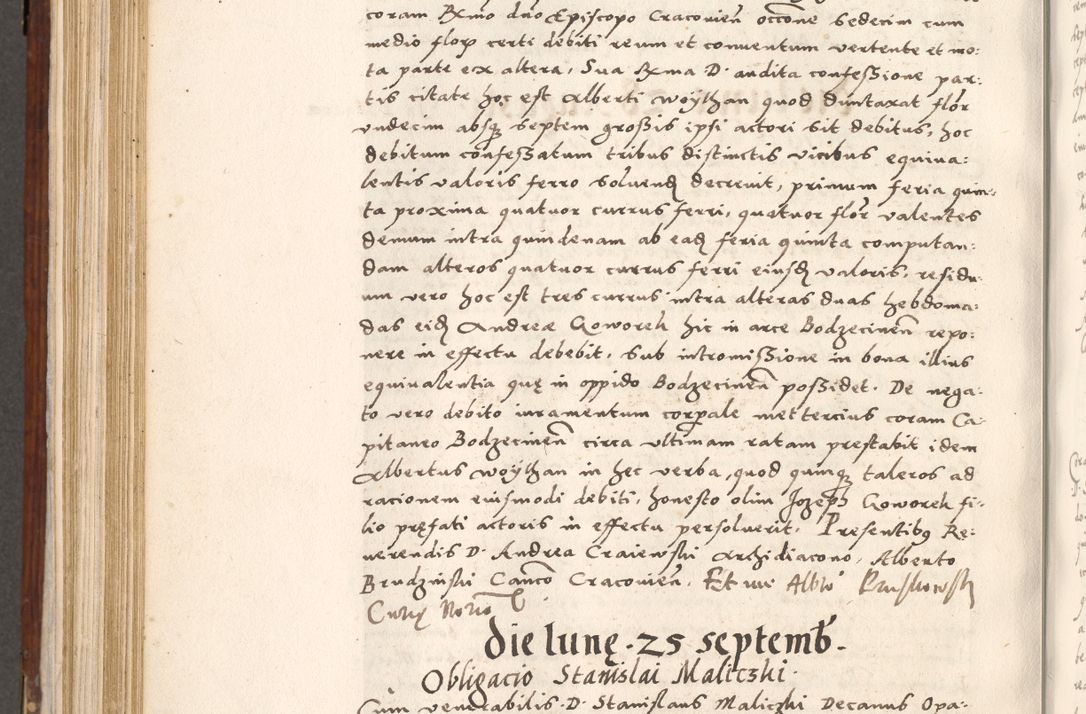 coram Rmo dno Episcopo Cracovien occone sedecim cum
medio flor certi debiti reum et conventum vertente et mo:
ta parte ex altera, Sua Rma D. audita confessione par:
tis citate hoc est Alberti Woythan quod duntaxat flor
undecim absq septem grossis ipsi actori sit debitus, hoc
debitum confessatum tribus distinctis vicibus equiva:
lentis valoris ferro solvend decrevit, primum feria quin:
ta proxima quatuor currus ferri, quatuor flor valentes
demum intra quindenam ab ead feria quinta computan:
dam alteros quatuor currus ferri eiusd valoris, residu:
um vero hoc est tres currus intra alteras duas hebdoma:
das eid Andreæ Goworek hic in arce Bodzecinen repo:
nere in effectu debebit, sub intromissione in bona illius
equivalentia quę in oppido Bodzecinen possidet. De nega:
to vero debito iuramentum corporale mettercius coram Ca:
pitaneo Bodzecinen circa ultimam ratam prestabit idem
Albertus Woythan in hec verba, quod quinq taleros ad
racionem eiusmodi debiti, honesto olim Jozeph Goworek fi:
lio pręfati actoris in effectu persolverit. Presentibus Re:
verendis D. Andrea Craiewski Archidiacono, Alberto
Brudzinski Canco Cracovien. Et me Albto Pruskowski
Curię Norio
die lunę. 25 septemb.
Obligacio Stanislai Maliczki.
Cum venerabilis D. Stanislaus Maliczki Decanus Opa: